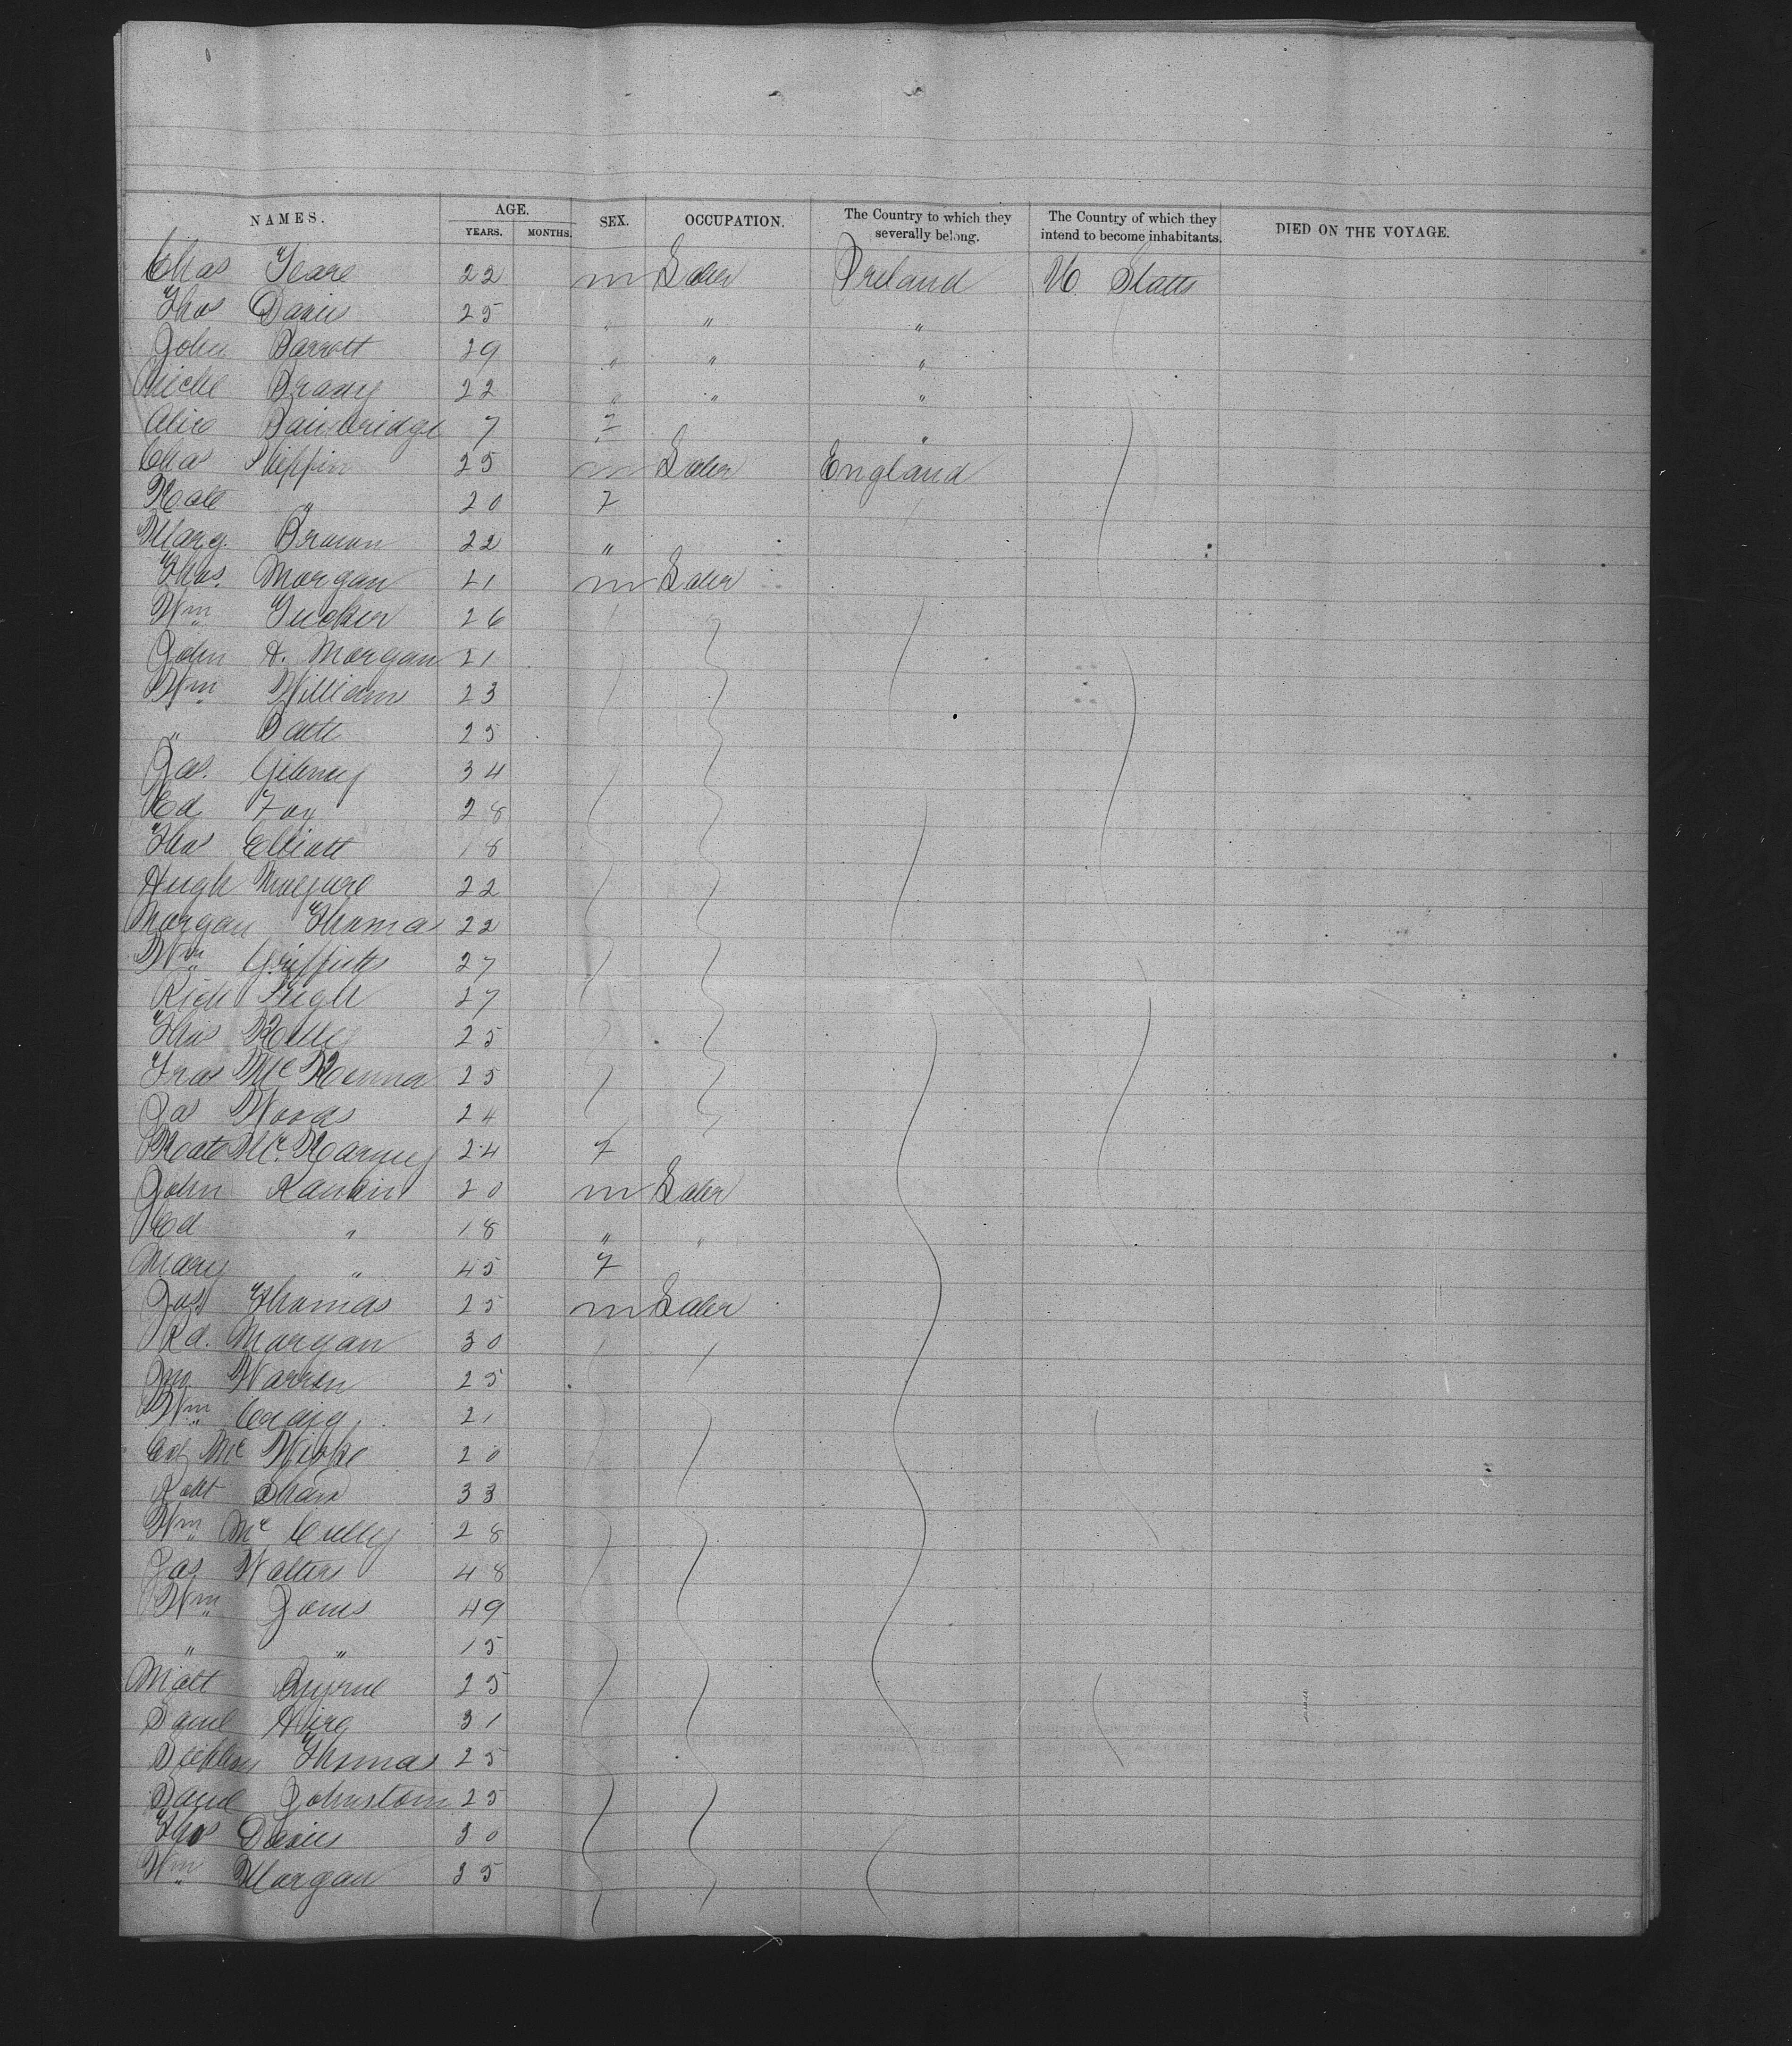 NAMES. AGE. YEARS. MONTHS. SEX. OCCUPATION. The Country to which they severally belong. The Country of which they intend to become inhabitants. DIED ON THE VOYAGE.
Chas Teare 22 m Laber Ireland U States
Thos Davis 25 " " "
John Barrott 29 " " "
Michl Brady 22 " " "
Alice Bainbridge 7 F "
Chas 25 m Laber England
Kate " 20 F
Marg. Brown 22 "
Thos. Morgan 21 m Laber
Wm Tucker 26
John H. Morgan 21
Wm William 23
" Batt 25
Jas. Gibney 34
Ed Fox 28
Thos Elliott 18
Hugh 22
Morgan Thomas 22
Wm Griffiths 27
Rich Pugh 27
Thos Kelly 25
Fras McKenna 25
Jas Woods 24
Kate Mc. Karney 24 F
John Rankin 20 m Laber
Ed " 18 " "
Mary " 45 F
Jos Thomas 25 m Laber
Rd. Morgan 30
Jno Warren 25
Wm Craig 21
Ed Mc 20
Robt Shaw 33
Wm Mc Cully 28
Jas Walters 48
Wm Jones 49
" " 15
Matt Byrne 25
Saml 31
Stephen Thomas 25
Saml Johnston 25
Thos Davies 30
Wm Morgan 35